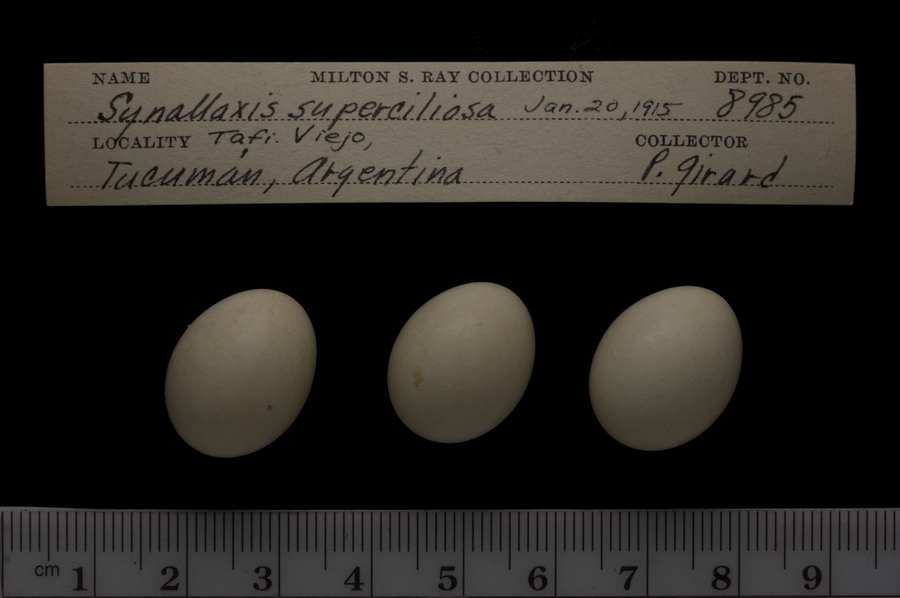 NAME MILTON S. RAY COLLECTION DEPT. NO.
Synallaxis superciliosa Jan. 20, 1915 8985
LOCALITY Tafi. Viejo, COLLECTOR
Tucumán, Argentina P. Girard
cm 1 2 3 4 5 6 7 8 9